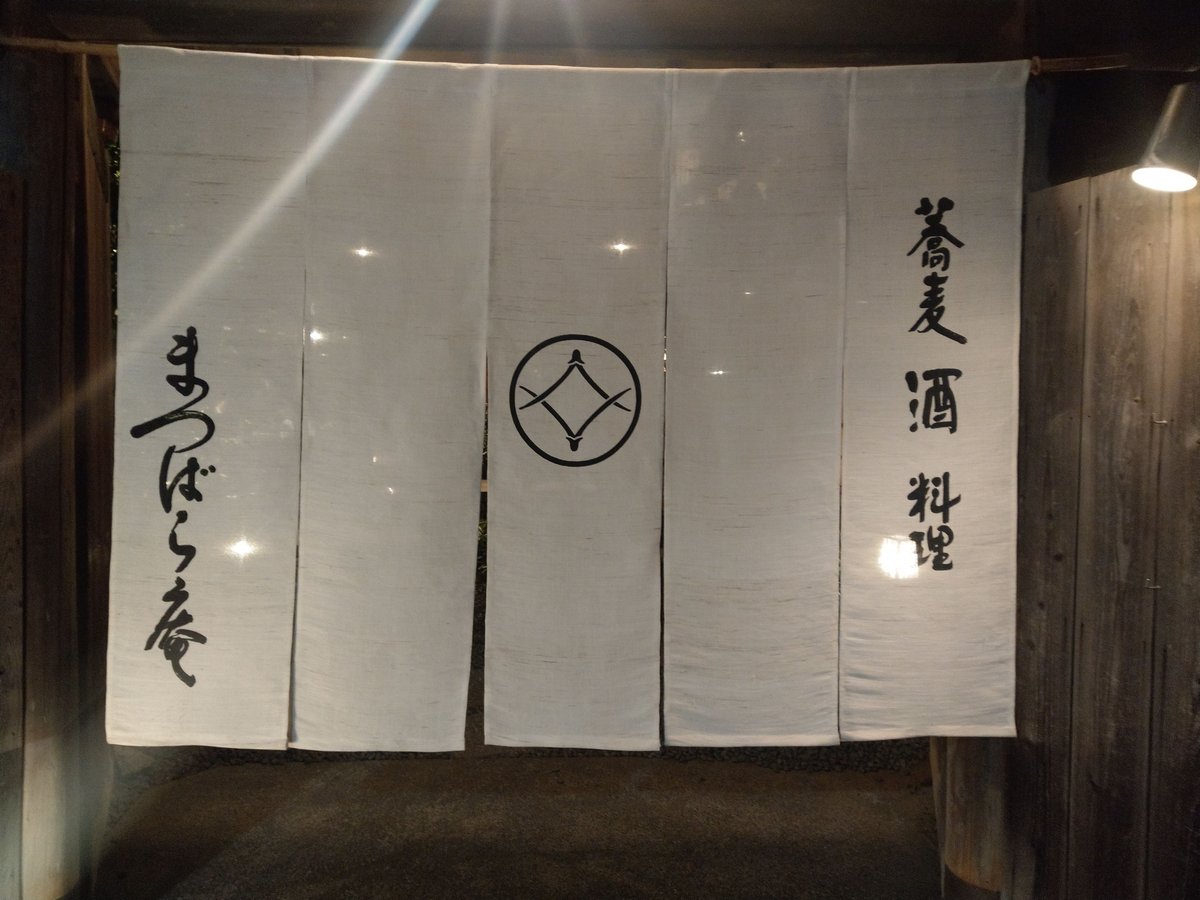 蕎麦 酒 料理
まつばら庵